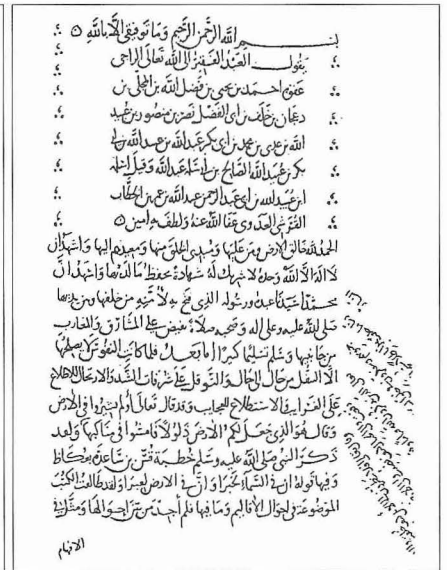 بسم الله الرحمن الرحيم وما توفيقي إلا بالله
يقول العبد الفقير إلى الله تعالى الراجي
عفوه احمد بن يحيى بن فضل الله بن المجلي بن
دعجان بن خلف بن ابي الفضل نصر بن منصور بن عبيد
الله بن عدي بن محمد بن ابي بكر عبد الله بن عبد الله بن ابي
بكر بن عبيد الله الصالح بن ابي سلمة عبد الله وقيل ابن سلمة
ابن عبيد الله بن ابي عبد الرحمن عبد الله بن عمر بن الخطاب
القرشي العدوي عفا الله عنه ولطف به امين
الحمد لله خالق الارض ومن عليها ومبدي الخلق منها ومعيدهم اليها واشهد ان
لا اله الا الله وحده لا شريك له شهادة يحفظ ما لديها واشهد ان
محمدا عبده ورسوله الذي
صلى الله عليه وعلى اله وصحبه صلاة تفيض على المشارق والمغارب
من جانبيها وسلم تسليما كثيرا اما بعد فلما كانت النفوس لا يصلحها
الا التنقل من حال الى حال والتوقل على شرفات الشد والارتحال للاطلاع
على الغرايب والاستطلاع للعجايب وقد قال تعالى اولم يسيروا في الارض
وقال هو الذي جعل لكم الارض ذلولا فامشوا في مناكبها ولقد
ذكر النبي صلى الله عليه وسلم خطبة قس بن ساعدة بعكاظ
وفيها قوله ان في السماء لخبرا وان في الارض لعبرا ولقد طالعت الكتب
الموضوعة في احوال الاقاليم وما فيها فلم اجد من بين احوالها ومثل في
الافهام